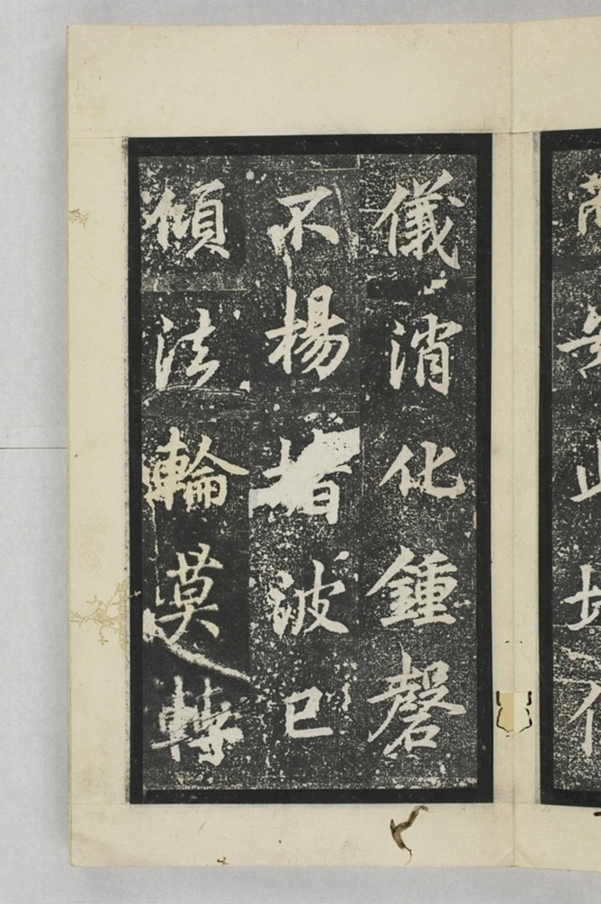 儀消化鍾磬
不楊波已
傾法輪莫轉